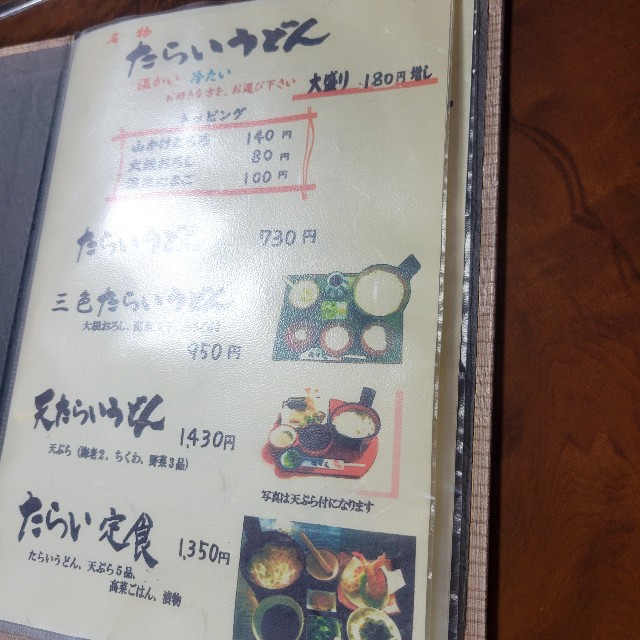 名物
たらいうどん
温かい 冷たい
お好きな方を、お選び下さい
大盛り 180円増し
トッピング
山かけとろろ 140円
大根おろし 80円
100円
たらいうどん 730円
三色たらいうどん
大根おろし
950円
天たらいうどん 1430円
天ぷら(海老2、ちくわ、野菜3品)
写真は天ぷら付になります
たらい定食 1,350円
たらいうどん、天ぷら5品、
ごはん、漬物